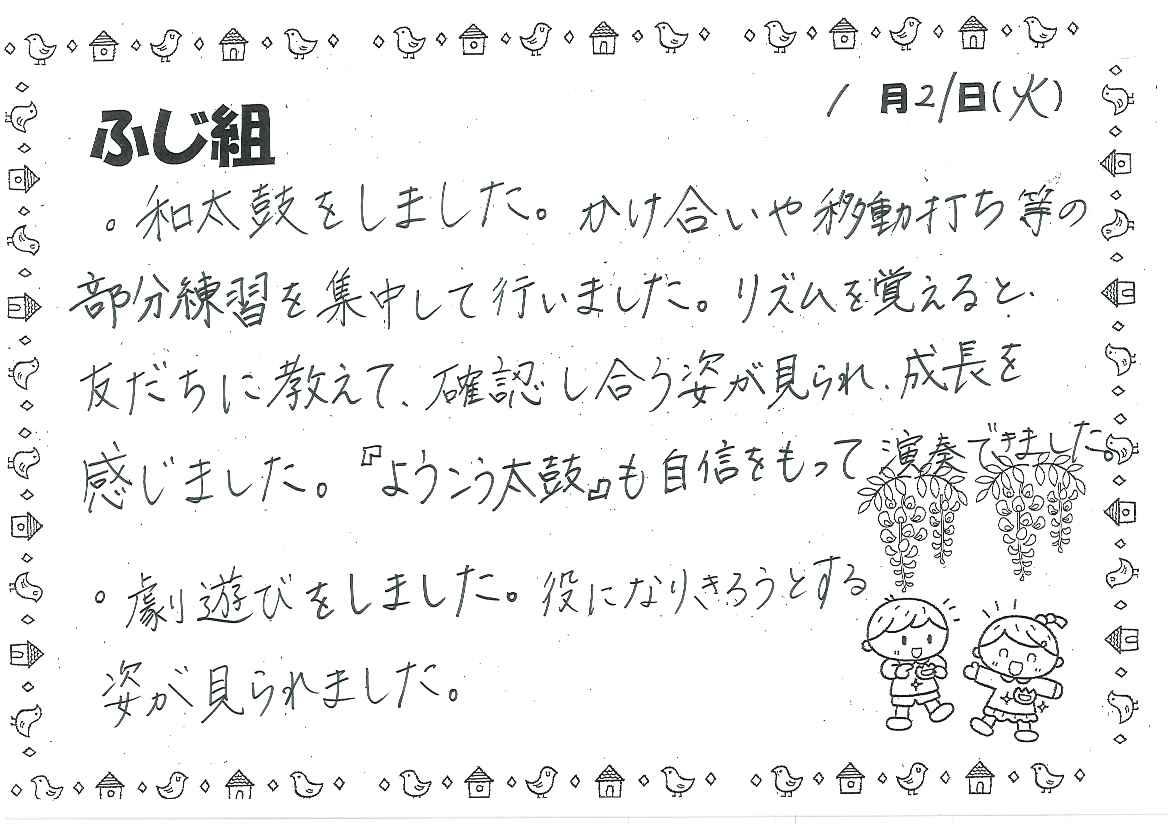 1月21日(火)
ふじ組
。和太鼓をしました。かけ合いや移動打ち等の
部分練習を集中して行いました。リズムを覚えると、
友だちに教えて、確認し合う姿が見られ、成長を
感じました。『ようこう太鼓』も自信をもって演奏できました。
。劇遊びをしました。役になりきろうとする
姿が見られました。